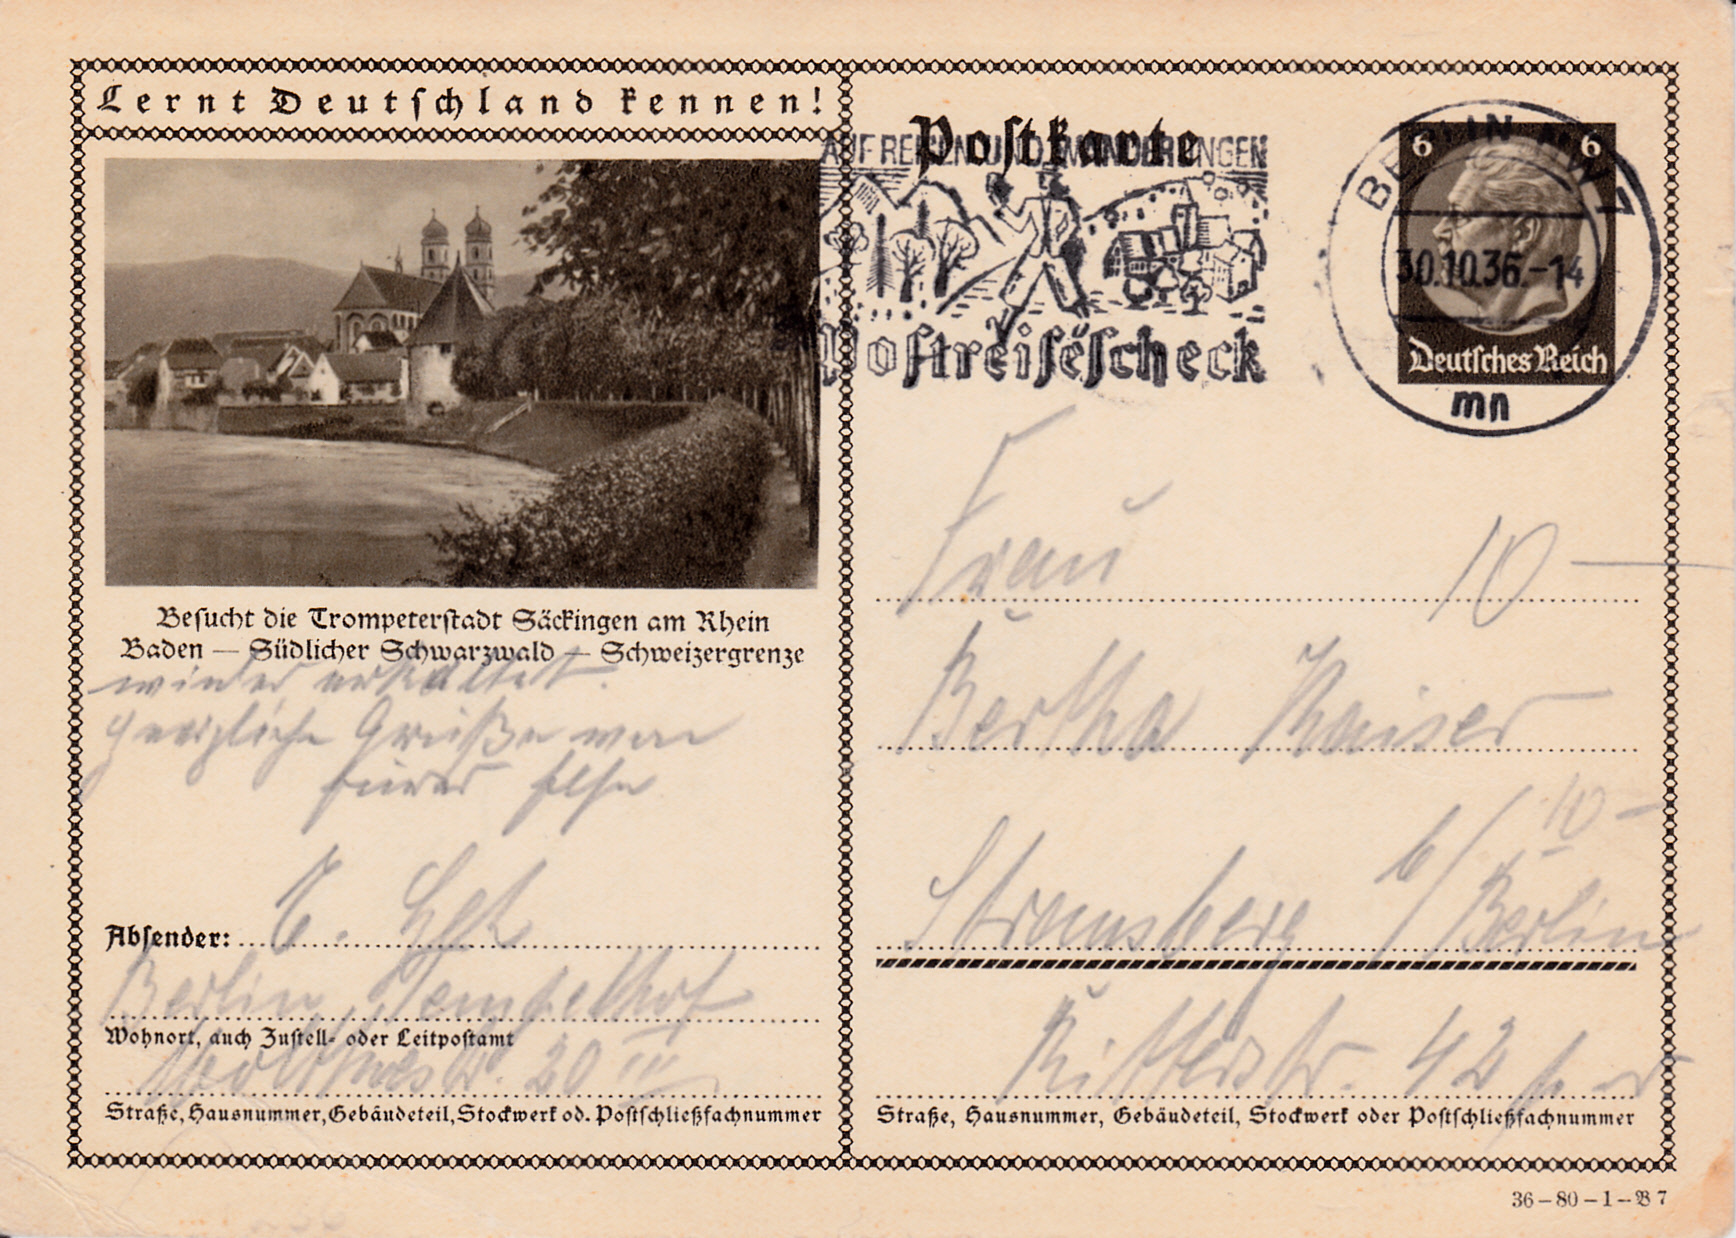 Lernt Deutschland kennen!
Besucht die Trompeterstadt Säckingen am Rhein
Baden — Südlicher Schwarzwald — Schweizergrenze
wieder erkältet.
Herzliche Grüße von
Eurer Else
Absender: E.
Berlin Tempelhof
Wohnort, auch Zustell- oder Leitpostamt
20 III
Straße, Hausnummer, Gebäudeteil, Stockwerk od. Postschließfachnummer
Postkarte
AUF REISEN UND WANDERUNGEN
Postreisescheck
6 6
BERLIN NW 7
30.10.36.-14
Deutsches Reich
mn
Frau
10 —
Bertha Kaiser
10 —
Strausberg b/Berlin
Ritterstr. 42
Straße, Hausnummer, Gebäudeteil, Stockwerk oder Postschließfachnummer
36 – 80 – 1 – B 7